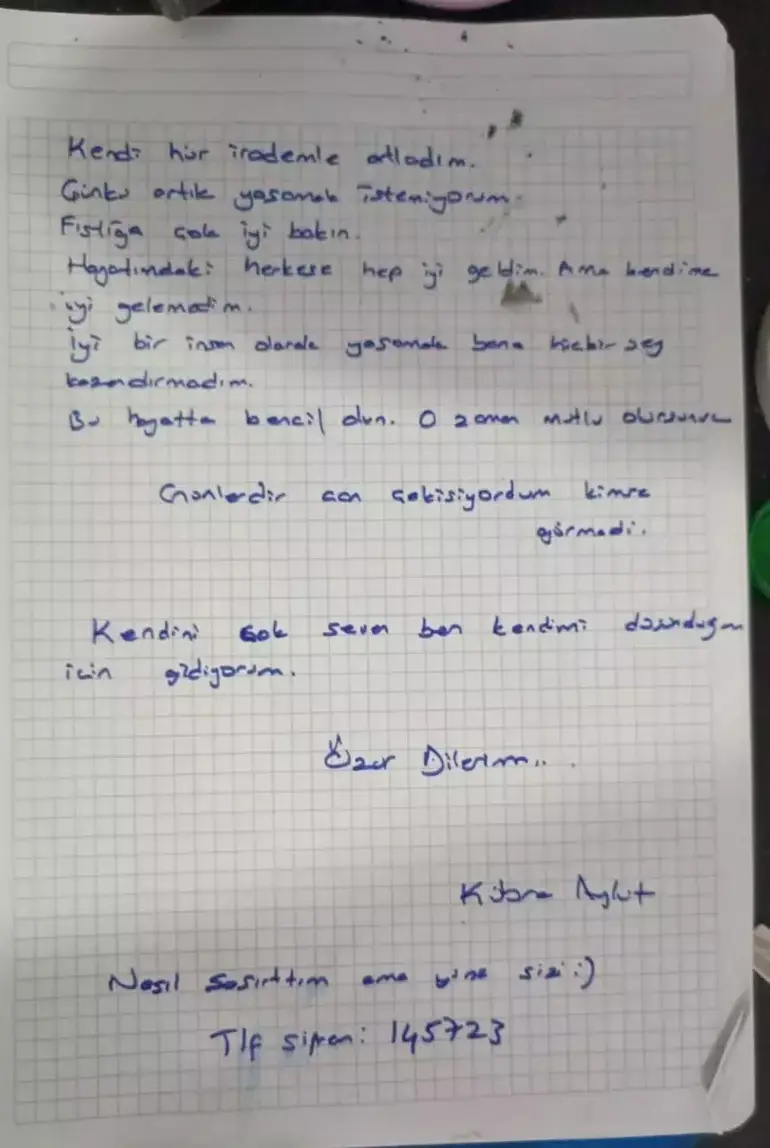 Kendi hür irademle atladım.
Çünkü artık yaşamak istemiyorum.
Fıstığa çok iyi bakın.
Hayatındaki herkese hep iyi geldim. Ama kendime
iyi gelemedim.
İyi bir insan olarak yaşamak bana hiçbir şey
kazandırmadım.
Bu hayatta bencil olun. O zaman mutlu olursunuz
Günlerdir can çekişiyordum kimse
görmedi.
Kendini çok seven ben kendimi düşündüğüm
için gidiyorum.
Özür Dilerim...
Kübra Aykut
Nasıl şaşırttım ama yine sizi :)
Tlf şifrem: 145723